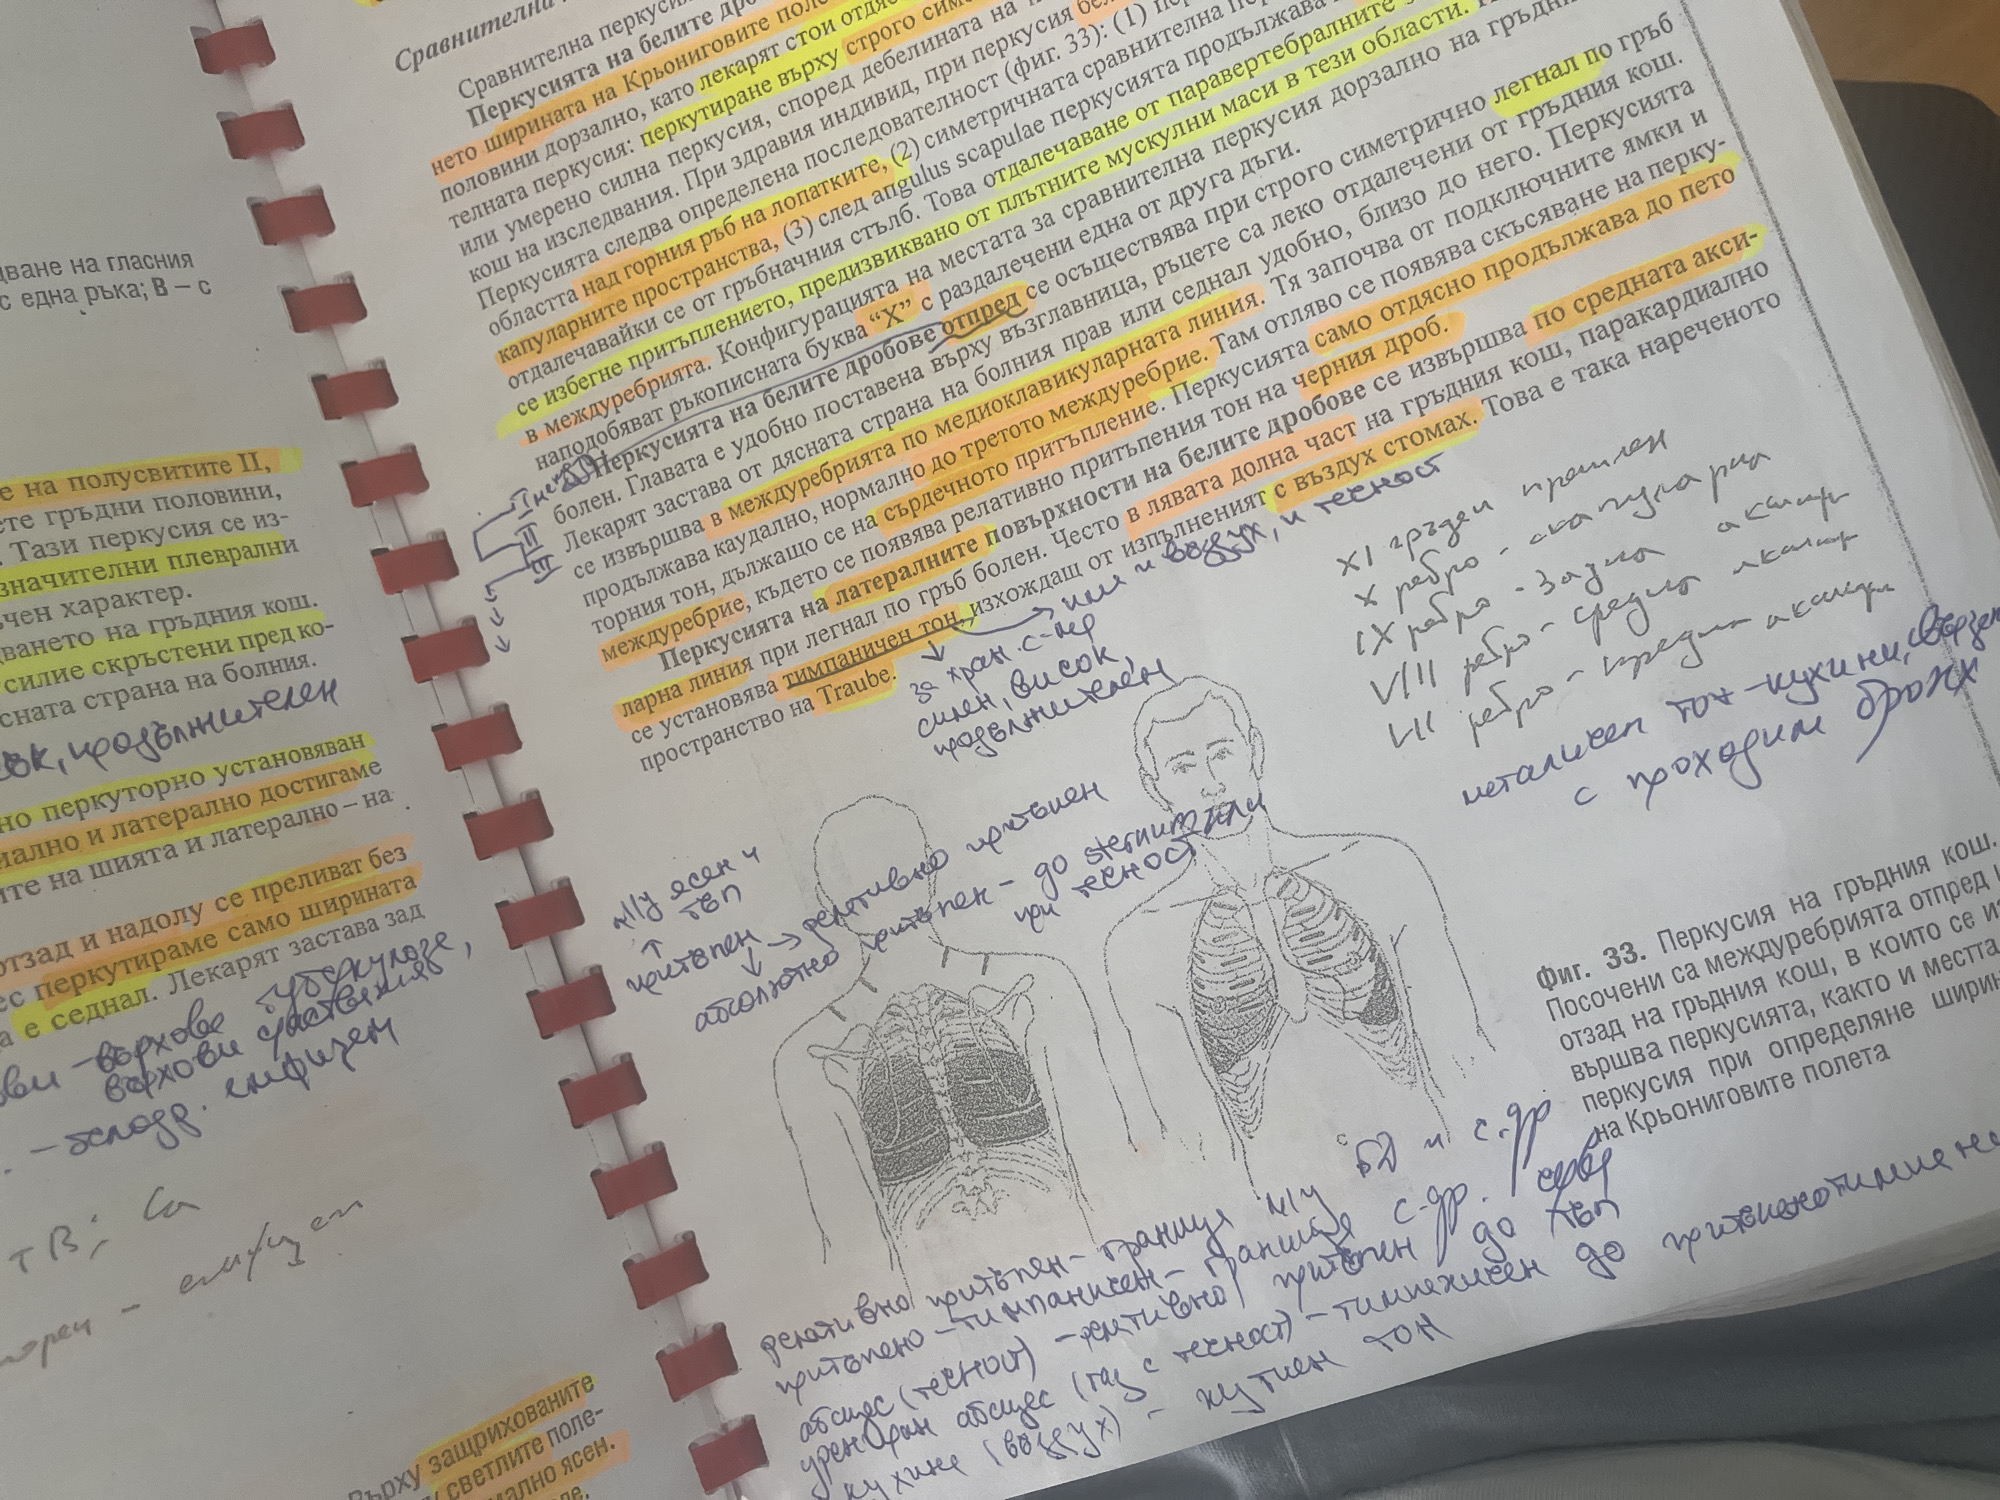 дване на гласния
с една ръка; В – с
е на полусвитите II,
ете гръдни половини,
. Тази перкусия се из-
значителни плеврални
чен характер.
ването на гръдния кош.
силие скръстени пред ко-
сната страна на болния.
продължителен
но перкуторно установяван
иално и латерално достигаме
ите на шията и латерално – на
отзад и надолу се преливат без
ес перкутираме само ширината
а е седнал. Лекарят застава зад
върхове туберкулоза,
върхови
емфизем
ТВ; Ca
емфизем
Върху защрихованите
светлите поле-
мално ясен.
Сравнителна
Сравнителна перкусия
Перкусията на белите
нето ширината на Крьониговите
половини дорзално, като лекарят стои отдяс
телната перкусия: перкутиране върху строго
или умерено силна перкусия, според дебелината на
кош на изследвания. При здравия индивид, при перкусия
Перкусията следва определена последователност (фиг. 33): (1)
областта над горния ръб на лопатките, (2) симетричната сравнителна
капуларните пространства, (3) след angulus scapulae перкусията продължава
отдалечавайки се от гръбначния стълб. Това отдалечаване от паравертебралните
се избегне притъплението, предизвиквано от плътните мускулни маси в тези области.
в междуребрията. Конфигурацията на местата за сравнителна перкусия дорзално на гръдни
наподобяват ръкописната буква “X” с раздалечени една от друга дъги.
Перкусията на белите дробове отпред се осъществява при строго симетрично легнал по гръб
болен. Главата е удобно поставена върху възглавница, ръцете са леко отдалечени от гръдния кош.
Лекарят застава от дясната страна на болния прав или седнал удобно, близо до него. Перкусията
се извършва в междуребрията по медиоклавикуларната линия. Тя започва от подключните ямки и
продължава каудално, нормално до третото междуребрие. Там отляво се появява скъсяване на перку-
торния тон, дължащо се на сърдечното притъпление. Перкусията само отдясно продължава до пето
междуребрие, където се появява релативно притъпения тон на черния дроб.
Перкусията на латералните повърхности на белите дробове се извършва по средната акси-
ларна линия при легнал по гръб болен. Често в лявата долна част на гръдния кош, паракардиално
се установява тимпаничен тон, изхождащ от изпълненият с въздух стомах. Това е така нареченото
пространство на Traube.
въздух, и течност
за хран.
силен, висок,
продължителен
XI гръден прешлен
X ребро - скапуларна
IX ребро - задна аксилар
VIII ребро - средна аксилар
VII ребро - предна аксилар
металичен тон - кухини,
с проходим бронх
м/у ясен и
тъп
притъпен → релативно притъпен
абсолютно притъпен - до sternum или
при течност
Фиг. 33. Перкусия на гръдния кош.
Посочени са междуребрията отпред и
отзад на гръдния кош, в които се из
вършва перкусията, както и местта
перкусия при определяне ширин
на Крьониговите полета
релативно притъпен - граница м/у БД и с.др
притъпено - тимпаничен - граница с.др.
абсцес (течност) - релативно притъпен до тъп
абсцес (газ с течност) - тимпаничен до
кухина (въздух) - кутиен тон